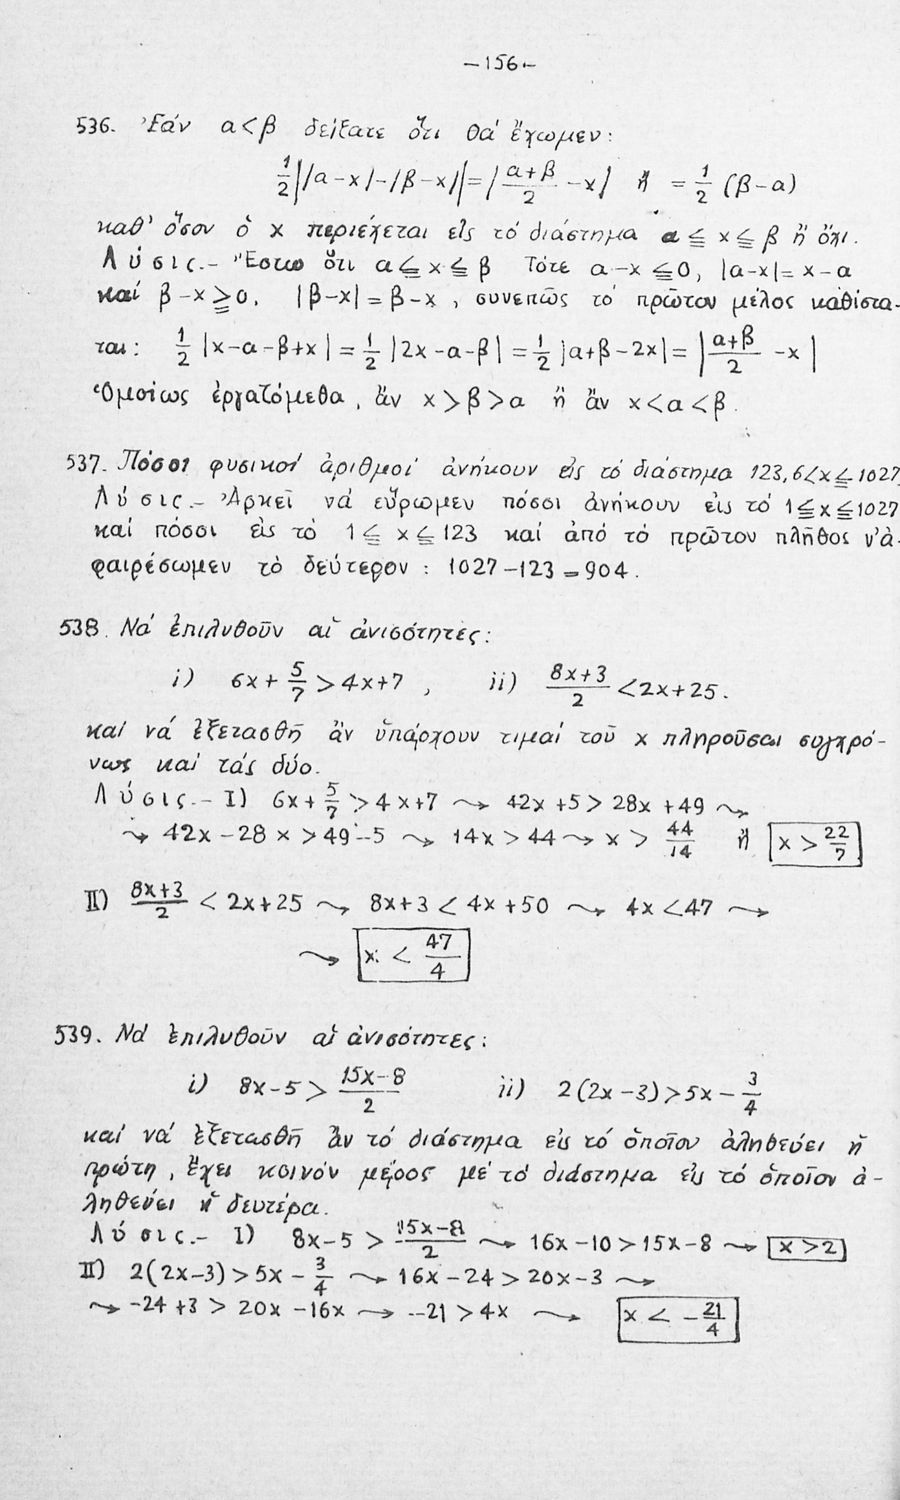 -156-
536. Ἐάν α<β δείξατε ὅτι θά ἔχωμεν:
1/2 ||α-x|-|β-x|| = |(α+β)/2 - x| ἤ = 1/2 (β-α)
καθ' ὅσον ὁ x περιέχεται εἰς τό διάστημα α ≦ x ≦ β ἤ ὄχι.
Λύσις.- Ἔστω ὅτι α ≦ x ≦ β Τότε α-x ≦ 0, |α-x| = x-α
καί β-x ≧ 0, |β-x| = β-x, συνεπῶς τό πρῶτον μέλος καθίστα-
ται: 1/2 |x-α-β+x| = 1/2 |2x-α-β| = 1/2 |α+β-2x| = |(α+β)/2 - x|
Ὁμοίως ἐργαζόμεθα, ἄν x>β>α ἤ ἄν x<α<β.
537. Πόσοι φυσικοί ἀριθμοί ἀνήκουν εἰς τό διάστημα 123,6<x≦1027.
Λύσις.- Ἀρκεῖ νά εὕρωμεν πόσοι ἀνήκουν εἰς τό 1≦x≦1027
καί πόσοι εἰς τό 1 ≦ x ≦ 123 καί ἀπό τό πρῶτον πλῆθος ν' ἀ-
φαιρέσωμεν τό δεύτερον: 1027-123=904.
538. Νά ἐπιλυθοῦν αἱ ἀνισότητες:
i) 6x + 5/7 > 4x+7, ii) (8x+3)/2 < 2x+25.
καί νά ἐξετασθῇ ἄν ὑπάρχουν τιμαί τοῦ x πληροῦσαι συγχρό-
νως καί τάς δύο.
Λύσις.- I) 6x + 5/7 > 4x+7 ⤳ 42x+5 > 28x+49 ⤳
⤳ 42x-28x > 49-5 ⤳ 14x > 44 ⤳ x > 44/14 ἤ x > 22/7
II) (8x+3)/2 < 2x+25 ⤳ 8x+3 < 4x+50 ⤳ 4x < 47 ⤳
⤳ x < 47/4
539. Νά ἐπιλυθοῦν αἱ ἀνισότητες:
i) 8x-5 > (15x-8)/2 ii) 2(2x-3) > 5x - 3/4
καί νά ἐξετασθῇ ἄν τό διάστημα εἰς τό ὁποῖον ἀληθεύει ἡ
πρώτη, ἔχει κοινόν μέρος μέ τό διάστημα εἰς τό ὁποῖον ἀ-
ληθεύει ἡ δευτέρα.
Λύσις.- I) 8x-5 > (15x-8)/2 ⤳ 16x-10 > 15x-8 ⤳ x > 2
II) 2(2x-3) > 5x - 3/4 ⤳ 16x-24 > 20x-3 ⤳
⤳ -24+3 > 20x-16x ⤳ -21 > 4x ⤳ x < -21/4